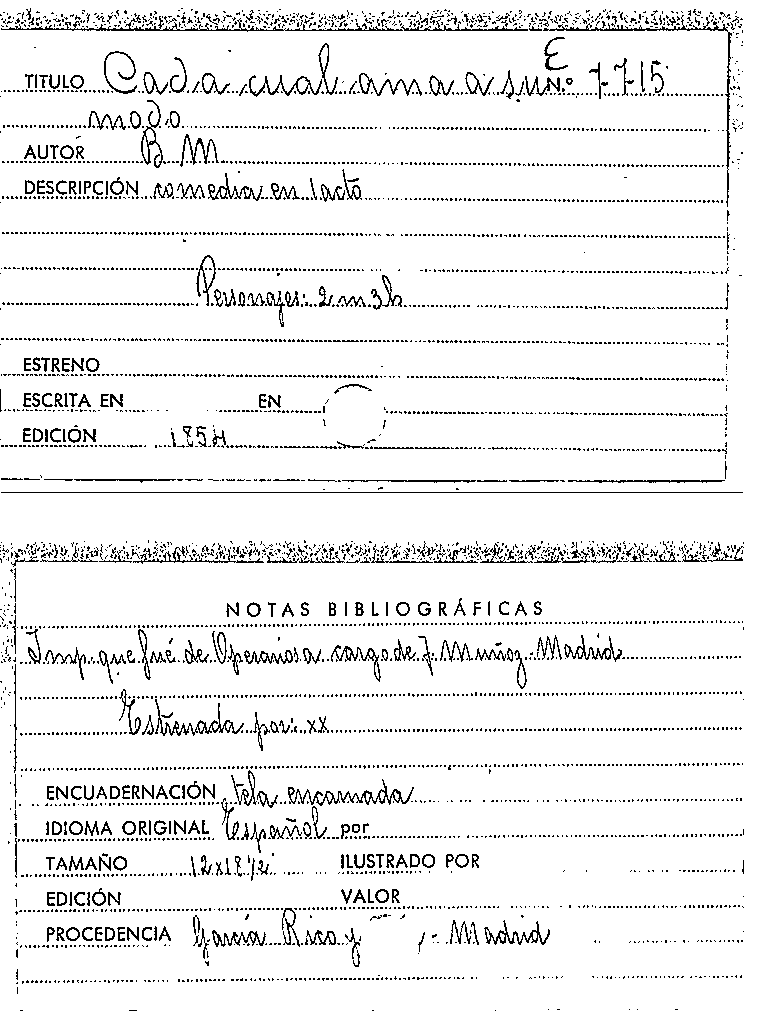 E
TITULO Cada cual ama a su N.º 7-7-15
modo
AUTOR B M
DESCRIPCIÓN comedia en 1 acto
Personajes: 2 m 3 h
ESTRENO
ESCRITA EN EN
EDICIÓN 1854
NOTAS BIBLIOGRÁFICAS
Imp. que fué de Operarios a cargo de J. Muñoz - Madrid
Estrenada por: xx
ENCUADERNACIÓN tela encarnada
IDIOMA ORIGINAL Español por
TAMAÑO 12x18 1/2 ILUSTRADO POR
EDICIÓN VALOR
PROCEDENCIA García Rico y - Madrid